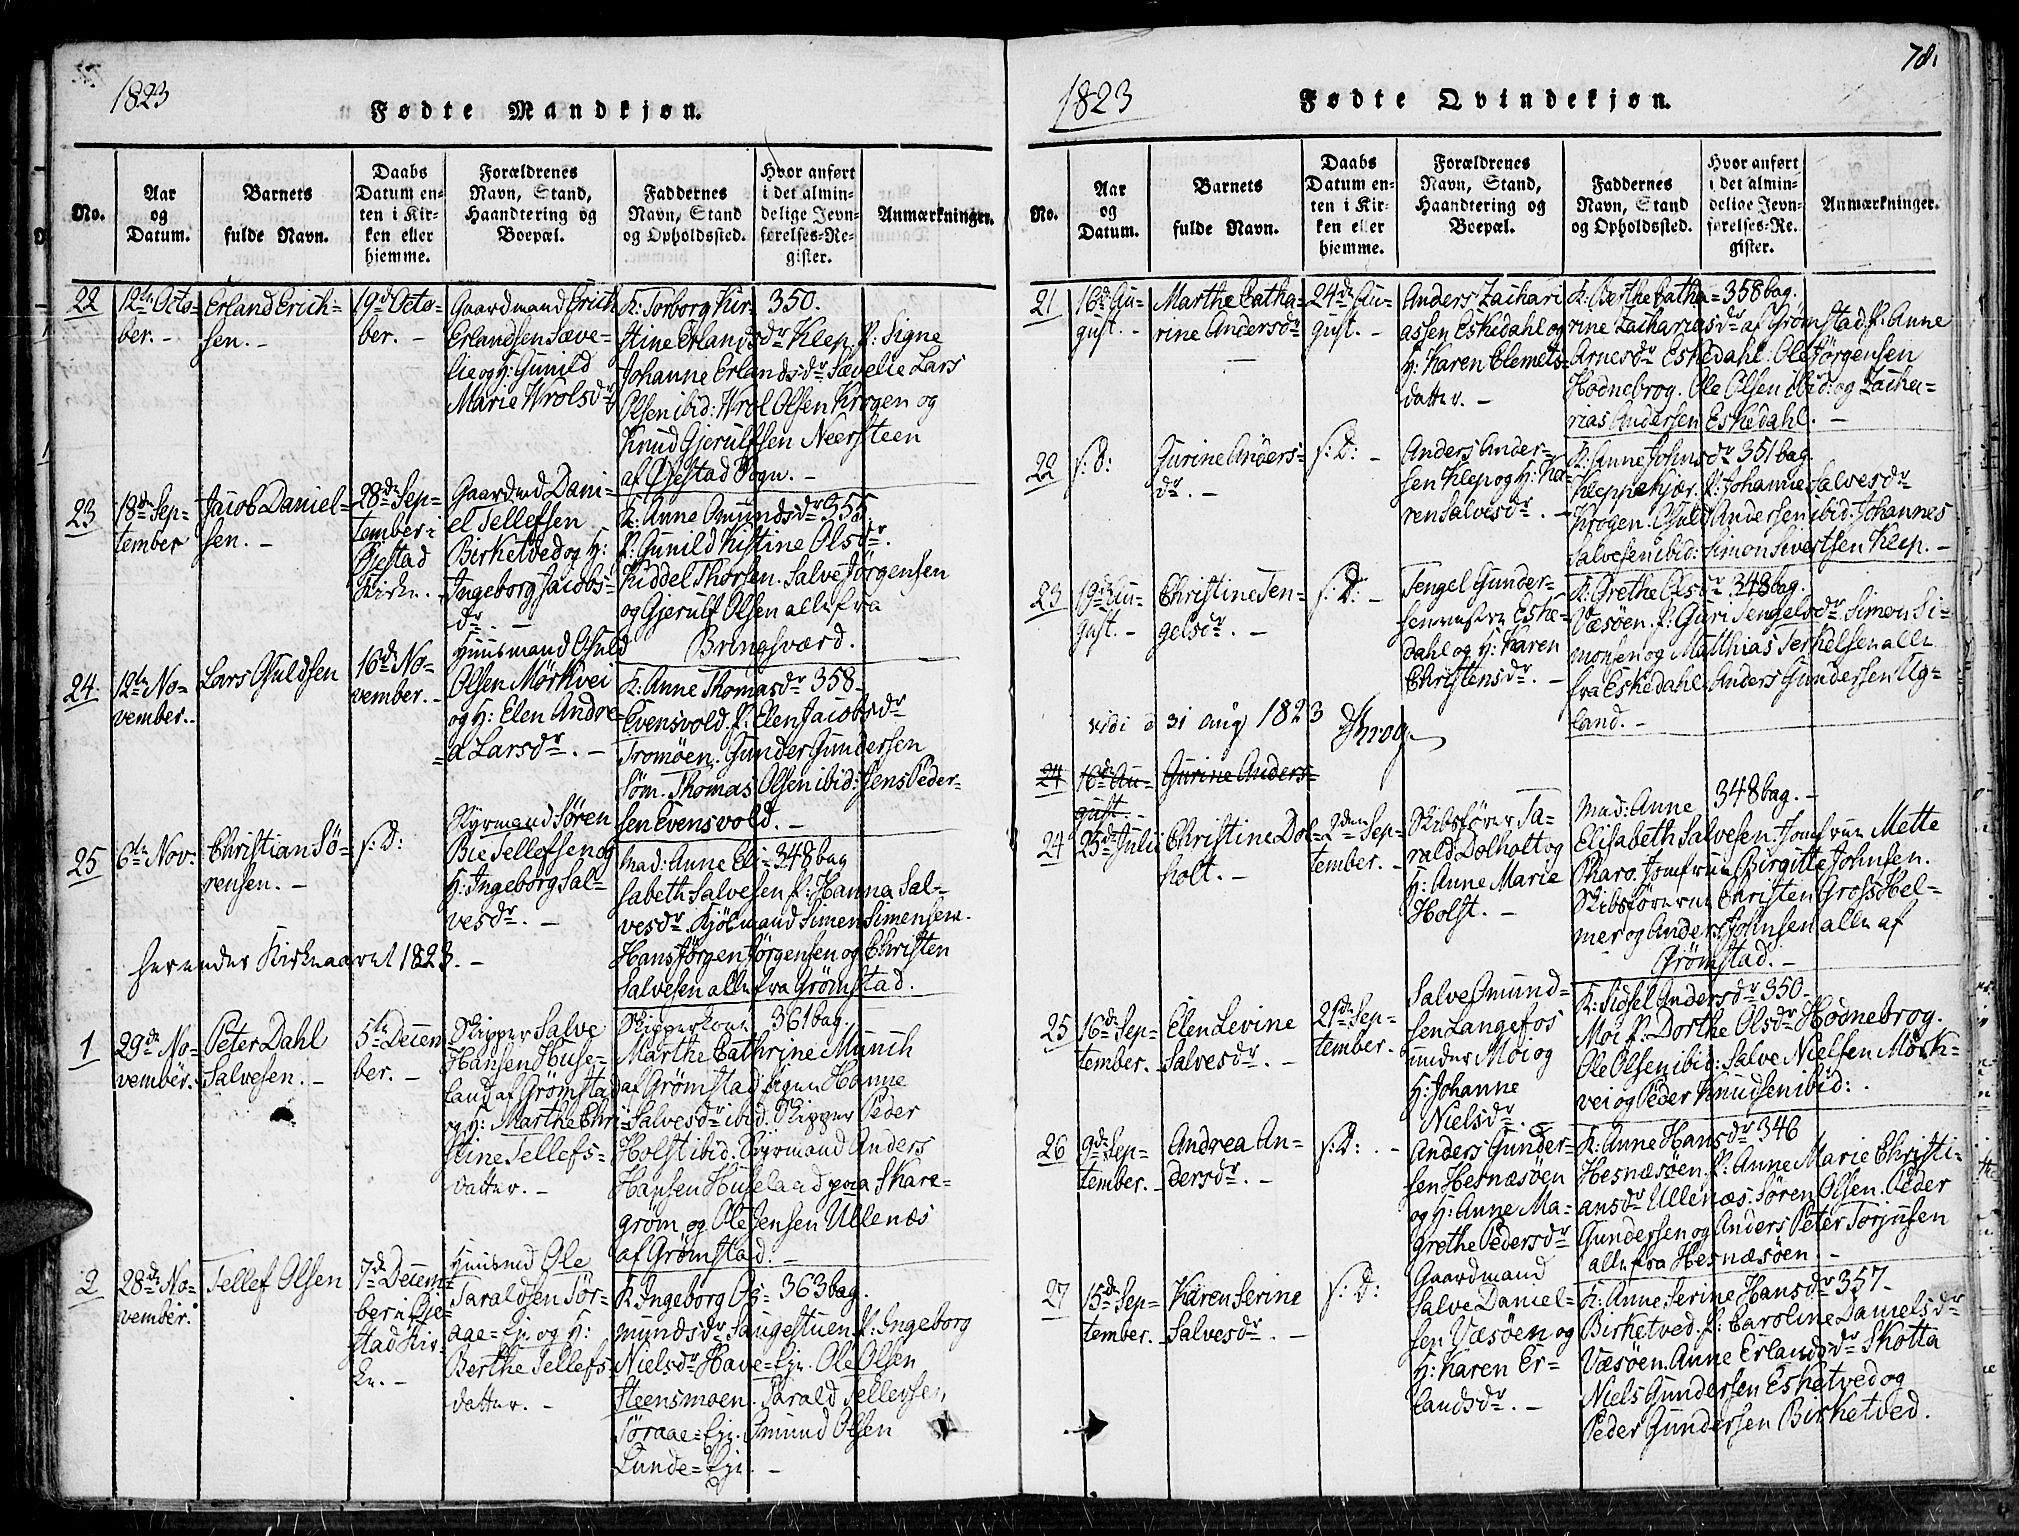 1823
Fødte Mandkjøn.
No.
Aar
og
Datum.
Barnets
fulde Navn.
Daabs
Datum en-
ten i Kir-
ken eller
hjemme.
Forældrenes
Navn, Stand,
Haandtering og
Boepæl.
Faddernes
Navn, Stand
og Opholdssted.
Hvor anført
i det almin-
delige Jevn-
førelses-Re-
gister.
Anmærkninger.
22
12te Octo-
ber. -
Erland Erich-
sen. -
19de Octo-
ber. -
Gaardmand Erich
Erlandsen Sæve-
lie og H: Gunild
Marie Wrolsdr
K: Torborg Kir- 350.
stine Erlandsdr Klep. P: Signe
Johanne Erlandsdr Sævelie Lars
Olsen ibid: Wrol Olsen Krogen og
Knud Gjerulfsen Neersteen
af Øiestad Sogn. -
23
18de Sep-
tember
Jacob Daniel-
sen. -
28de Sep-
tember i
Øiestad
Kirke. -
Gaardmd Dani-
el Tellefsen
Birketved og H:
Ingeborg Jacobs-
dr. -
K: Anne Omundsdr 355.
P: Gunild Kistine Olsdr.
Kiddel Thorsen. Salve Jörgensen
og Gjerulf Olsen alle fra
Bringsværd.
24.
12te No-
vember. -
Lars Osuldsen
16de No-
vember. -
Huusmand Osuld
Olsen Mörkvei
og H: Elen Andre-
a Larsdr. -
K: Anne Thomasdr 358-
Evensvold. P: Elen Jacobsdr
Tromöen. Gunder Gundersen
Söm. Thomas Olsen ibid: Jens Peder-
sen Evensvold. -
25
6te Nov-
Christian Sö-
rensen. -
s: D:
Styrmand Sören
Bie Tellefsen og
H: Ingeborg Sal-
vesdr. -
Mad: Anne Eli- 348 bag
sabeth Salvesen P: Hanna Sal-
vesdr. Kjöbmand Simen Simensen.
Hans Jörgen Jörgensen og Christen
Salvesen alle fra Grömstad.
her ender Kirkeaaret 1823. -
1
29de No-
vember.
Peter Dahl
Salvesen. -
5te Decem-
ber. -
Skipper Salve
Hansen Huse-
land af Grömstad
og H: Marthe Chri-
stine Tellefs-
datter. -
Skipperkone 361 bag.
Marthe Cathrine Munch
af Grömstad. Pigen Hanne
Salvesdr ibid. Skipper Peder
Holst ibid: Styrmand Anders
Hansen Huseland paa Skare-
gröm og Ole Jensen Ullenæs
af Grömstad. -
2
28de No-
vember.
Tellef Olsen
7de Decem-
ber i Øie-
stad Kir-
ke. -
Huusmd Ole
Taraldsen Tör-
aae-Eje og H:
Berthe Tellefs-
datter. -
K: Ingeborg Os- 363 bag.
mundsdr Saugestuen P: Ingeborg
Nielsdr Have-Eje. Ole Olsen
Steensmoen. Tarald Tellefsen
Töraae-Eje. Omund Olsen
Lunde-Eje. -
78.
1823
Fødte Qvindekjøn.
No.
Aar
og
Datum.
Barnets
fulde Navn.
Daabs
Datum en-
ten i Kir-
ken eller
hjemme.
Forældrenes
Navn, Stand,
Haandtering og
Boepæl.
Faddernes
Navn, Stand
og Opholdssted.
Hvor anført
i det almin-
delige Jevn-
førelses-Re-
gister.
Anmærkninger.
21
16de Au-
gust. -
Marthe Catha-
rine Andersdr
24de Au-
gust. -
Anders Zachari
assen Eskedahl og
H: Karen Clemets-
datter. -
K: Berthe Catha- 358 bag.
rine Zachariasdr af Grömstad. P: Anne
Arnesdr Eskedahl. Ole Jörgensen
Hodnebrog. Ole Olsen ibid: og Zacha-
rias Andersen Eskedahl. -
22
s: D:
Gurine Anders-
dr. -
s: D: -
Anders Ander-
sen Klep og H: Ka-
ren Salvesdr. -
K: Anne Johnsdr 351 bag
Kleppekjær. P: Johanne Salvesdr
Krogen. Osuld Andersen ibid. Johannes
Salvesen ibid: Simon Sivertsen Klep. -
23
19de Au-
gust. -
Christine Ten-
gelsdr. -
s: D: -
Tengel Gunder-
sen nedre Eske-
dahl og H: Karen
Christensdr. -
K: Grethe Olsdr 348 bag.
Væsöen. P: Guri Tengelsdr Simon Si-
monsen og Matthias Terkelsen alle
fra Eskedahl. Anders Gundersen Ug-
land. -
vidi d 31 aug 1823 Krog
24
16de Au-
gust. -
Gurine Anders-
24
25de Julii
Christine Dol-
holt. -
2den Sep-
tember. -
Skibsförer Ta-
rald Dolholt og
H: Anne Marie
Holst. -
Mad: Anne 348 bag. -
Elisabeth Salvesen. Jomfrue Mette
Pharo. Jomfrue Birgitte Johnsen.
Skibsförerne Christen Gross Hel-
mer og Anders Johnsen alle af
Grömstad. -
25
16de Sep-
tember.
Elen Levine
Salvesdr. -
21de Sep-
tember.
Salve Omund-
sen Langefos
under Moi og
H: Johanne
Nielsdr. -
K: Sidsel Andersdr 350-
Moi P: Dorthe Olsdr Hodnebrog.
Ole Olsen ibid: Salve Nielsen Mörk-
vei og Peder Knudsen ibid: .
26
9de Sep-
tember. -
Andrea An-
dersdr. -
s: D: . -
Anders Gunder-
sen Hesnæsöen
og H: Anne Ma-
grethe Pedersdr
K: Anne Hansdr 346
Hesnæsöen. P: Anne Marie Christi-
ansdr Ullenæs. Sören Olsen. Peder
Gundersen og Anders Peter Torjusen
alle fra Hesnæsöen. -
27
15de Sep-
tember. -
Karen Serine
Salvesdr. -
s: D:
Gaardmand
Salve Daniel-
sen Væsöen og
H: Karen Er-
landsdr. -
K: Anne Serine Hansdr 357-
Birketved. P: Caroline Danielsdr
Væsöen. Anne Erlandsdr Skotta
Niels Gundersen Esketved og
Peder Gundersen Birketved.